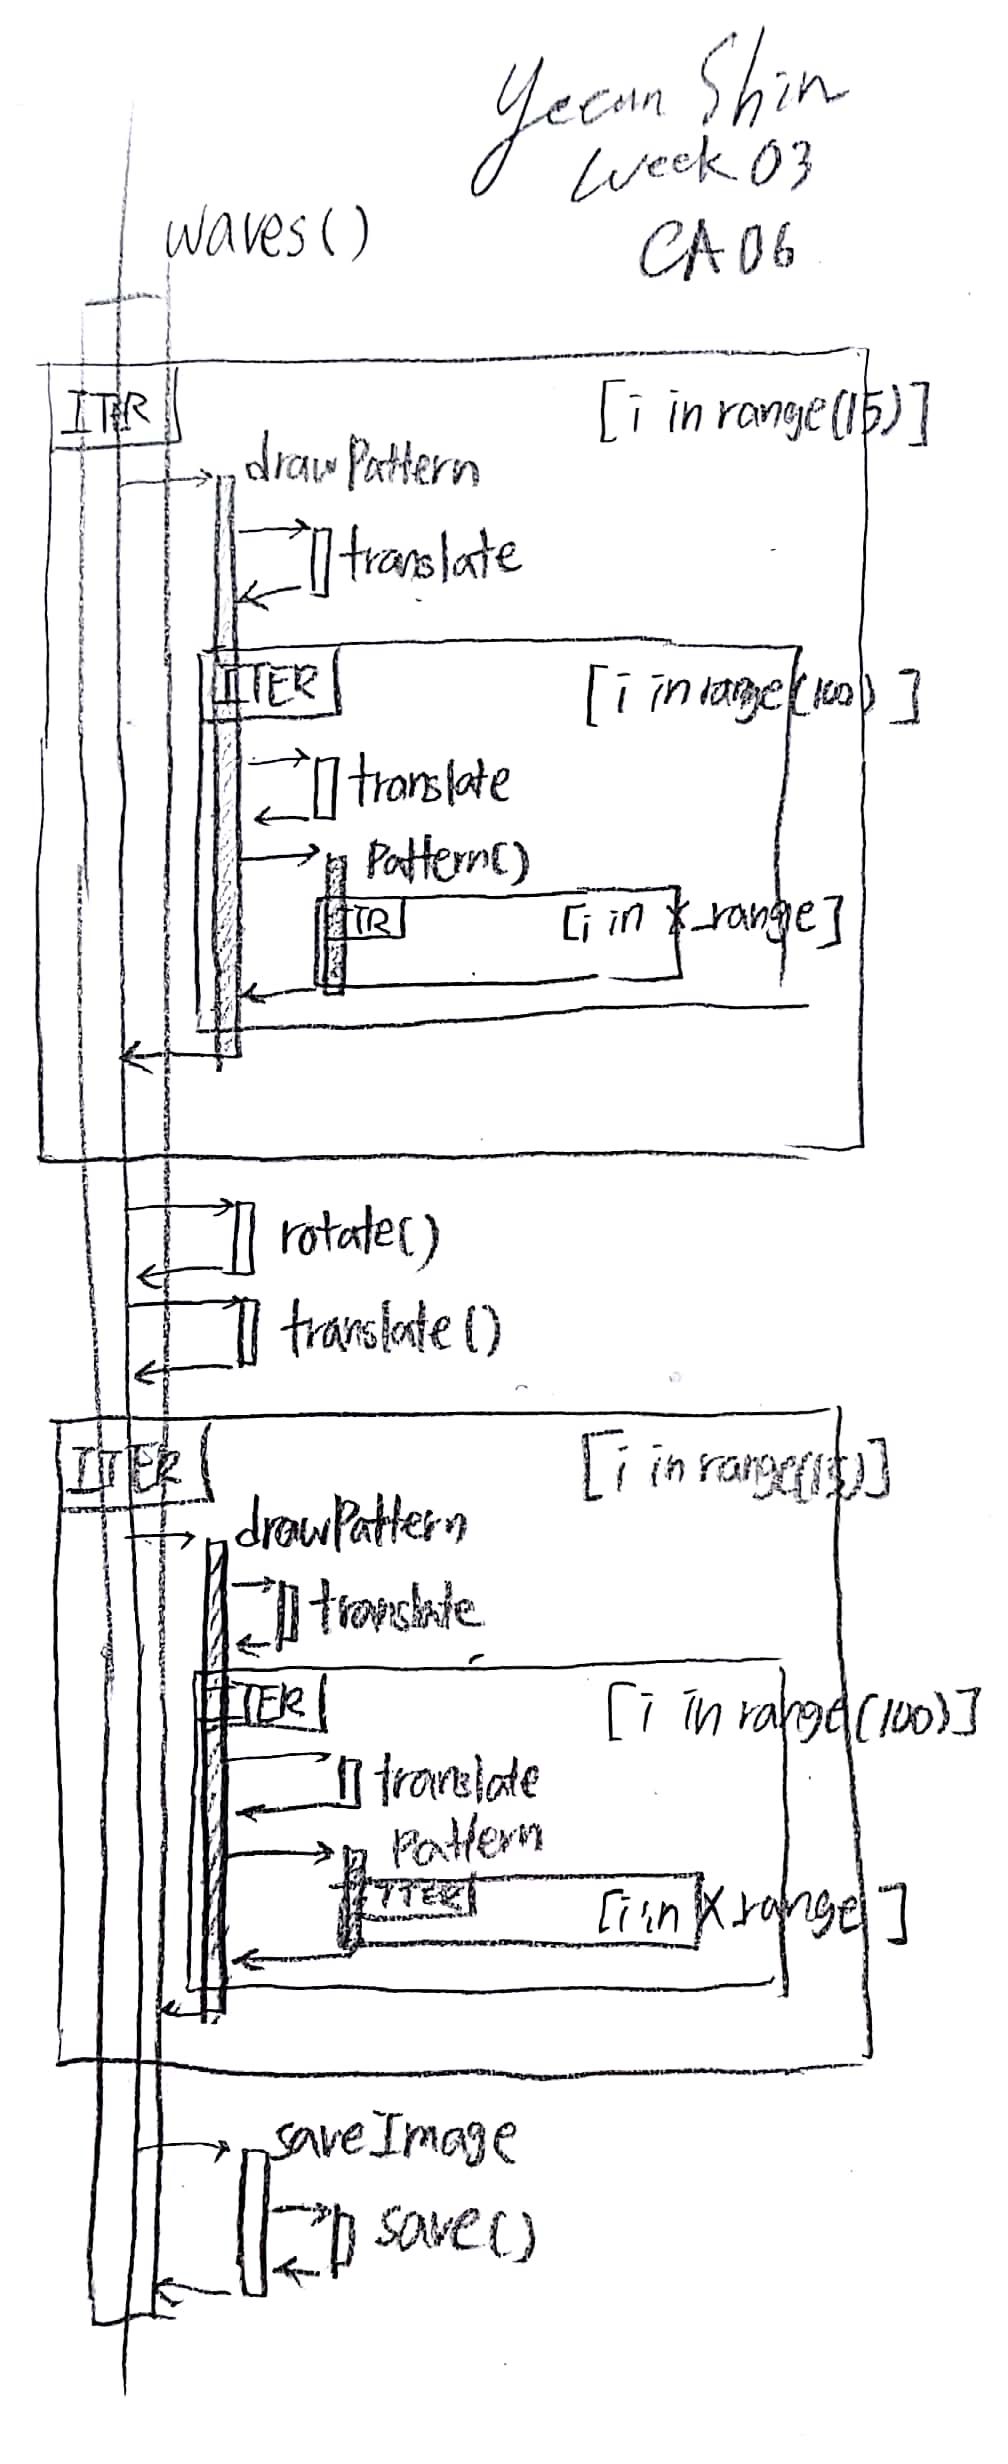 Yeeun Shin
Week 03
CA 06
waves()
ITR [i in range(15)]
drawPattern
translate
ITER [i in range(100)]
translate
Pattern()
ITR [i in x_range]
rotate()
translate()
ITER [i in range(15)]
drawPattern
translate
ITER [i in range(100)]
translate
Pattern
ITER [i in x_range]
saveImage
save()